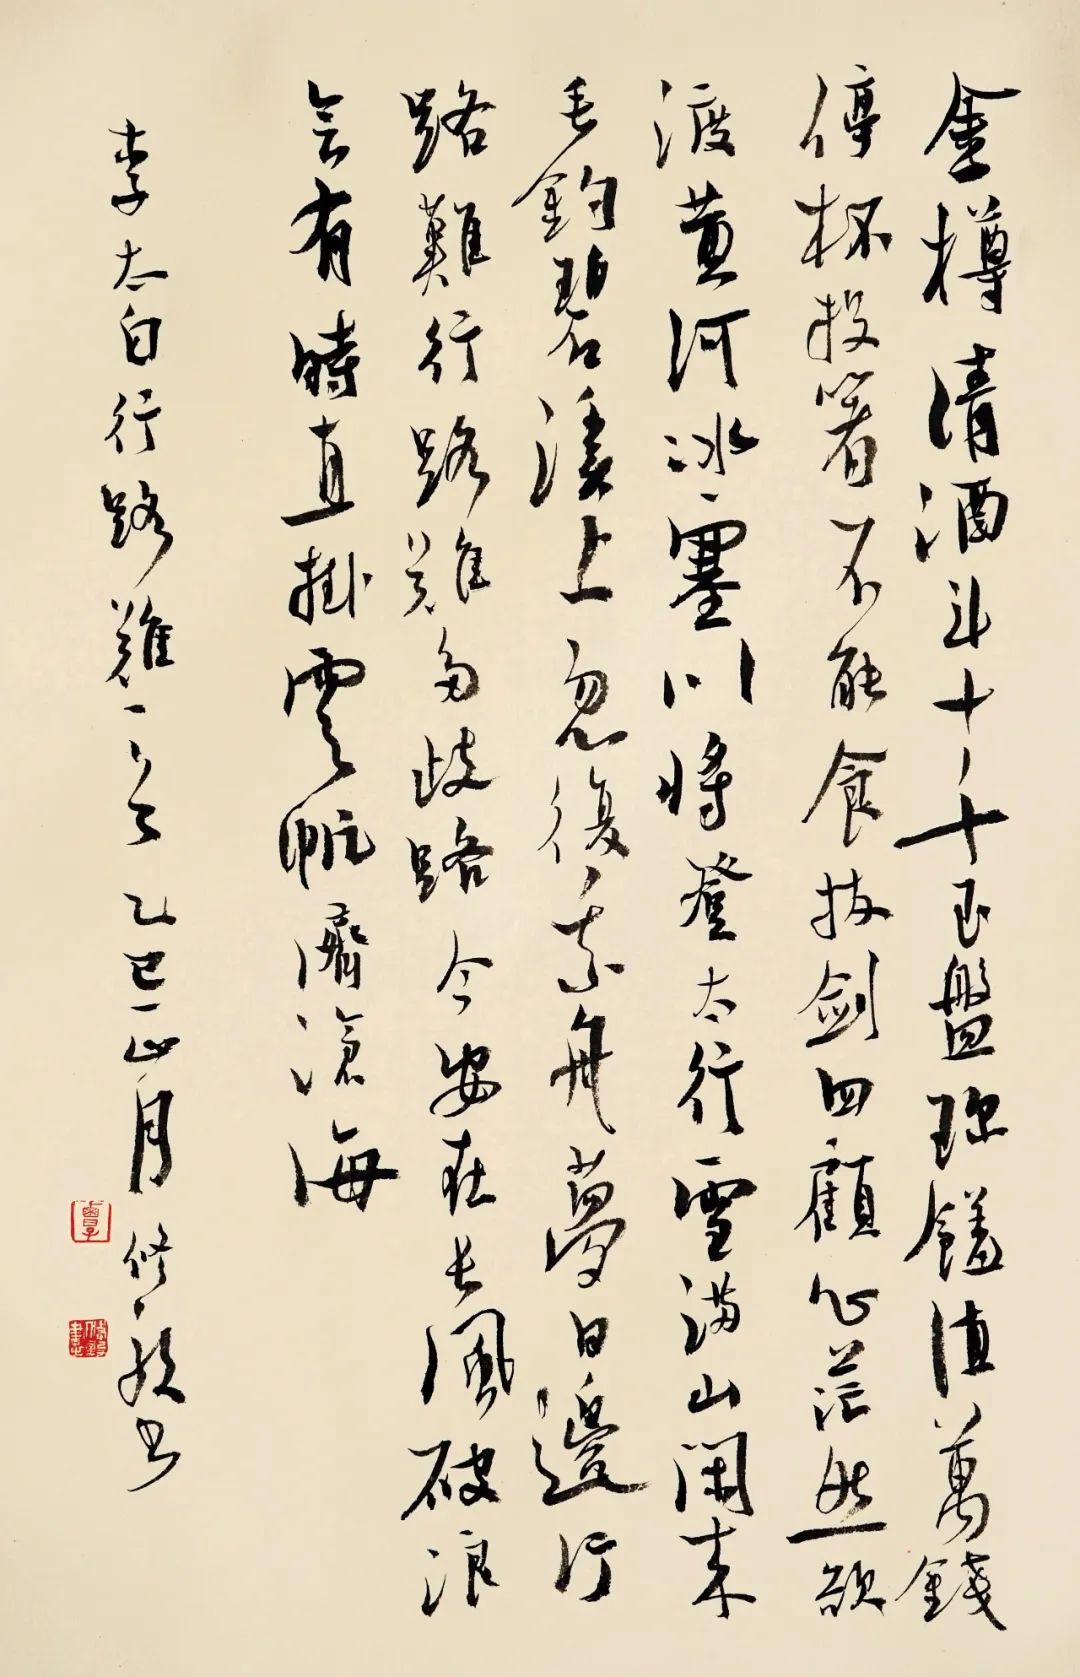 金樽清酒斗十千玉盤珍饈值萬錢
停杯投箸不能食拔劍四顧心茫然欲
渡黃河冰塞川將登太行雪滿山閑來
垂釣碧溪上忽復乘舟夢日邊行
路難行路難多歧路今安在長風破浪
會有時直掛雲帆濟滄海
李太白行路難一首乙巳正月修書